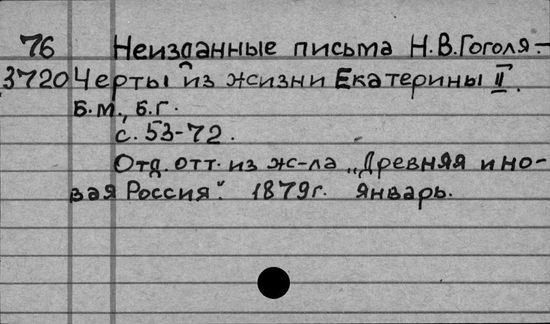 76 Неизданные письма Н.В.Гоголя-
3720 Черты из жизни Екатерины II.
Б.м., б.г.
с. 53-72.
Отд. отт. из ж-ла „Древняя и но-
вая Россия". 1879г. Январь.